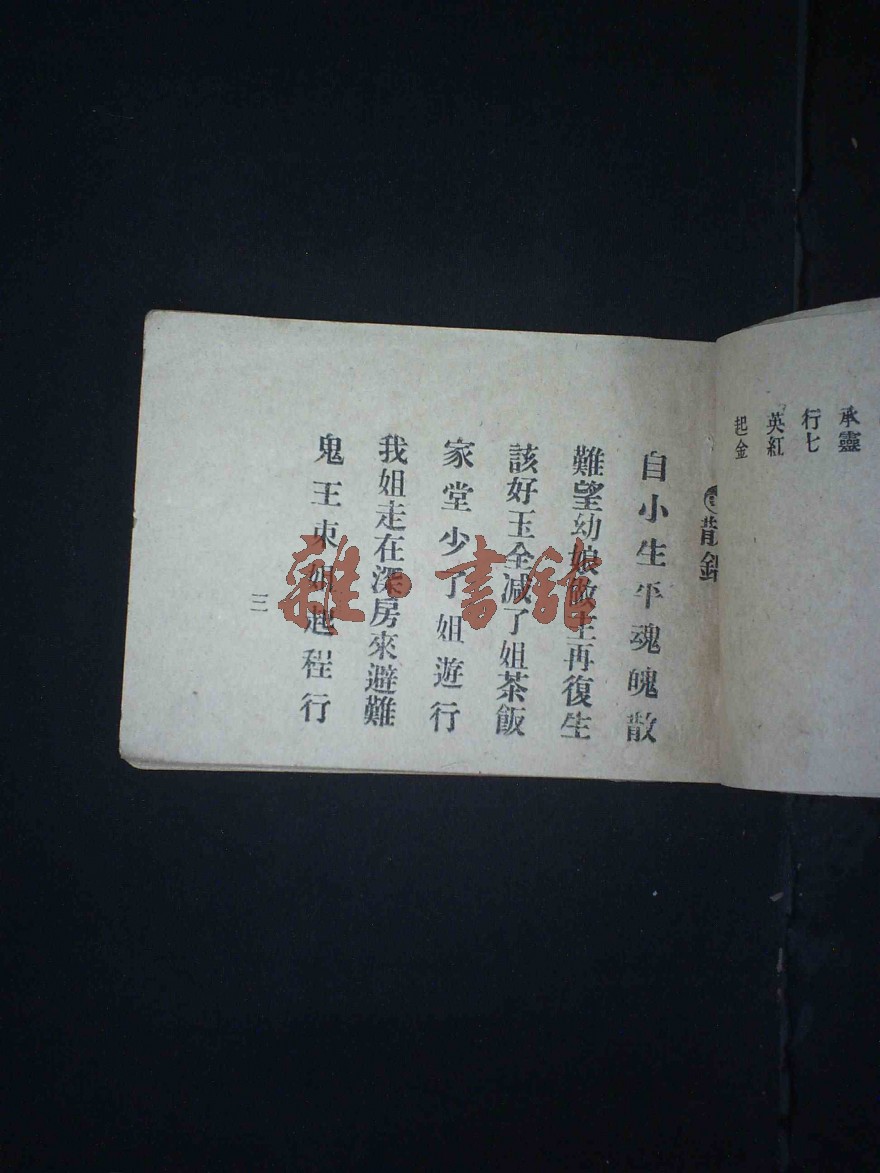 承靈
行七
英紅
起金
自小生平魂魄散
難望幼娘 再復生
該好玉全减了姐茶飯
家堂少了姐遊行
我姐走在深房來避難
鬼王 姐起程行
三
雜·書館